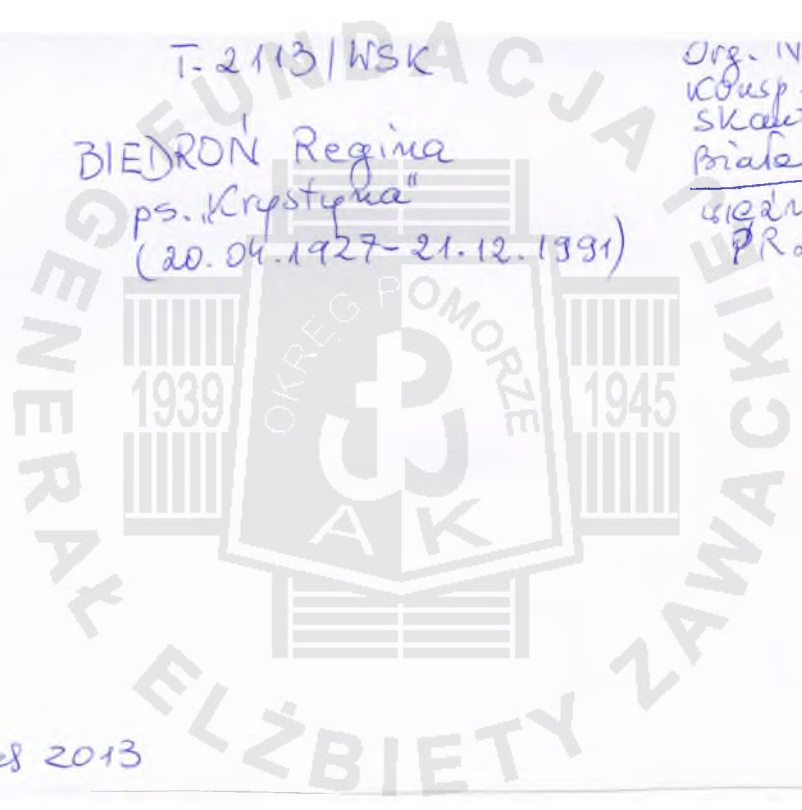 T. 2113/WSK
BIEDROŃ Regina
ps. „Krystyna"
(20.04.1927-21.12.1991)
Org.
Konsp.
Biała
2013
FUNDACJA GENERAŁ ELŻBIETY ZAWACKIEJ
OKRĘG POMORZE
1939
1945
AK